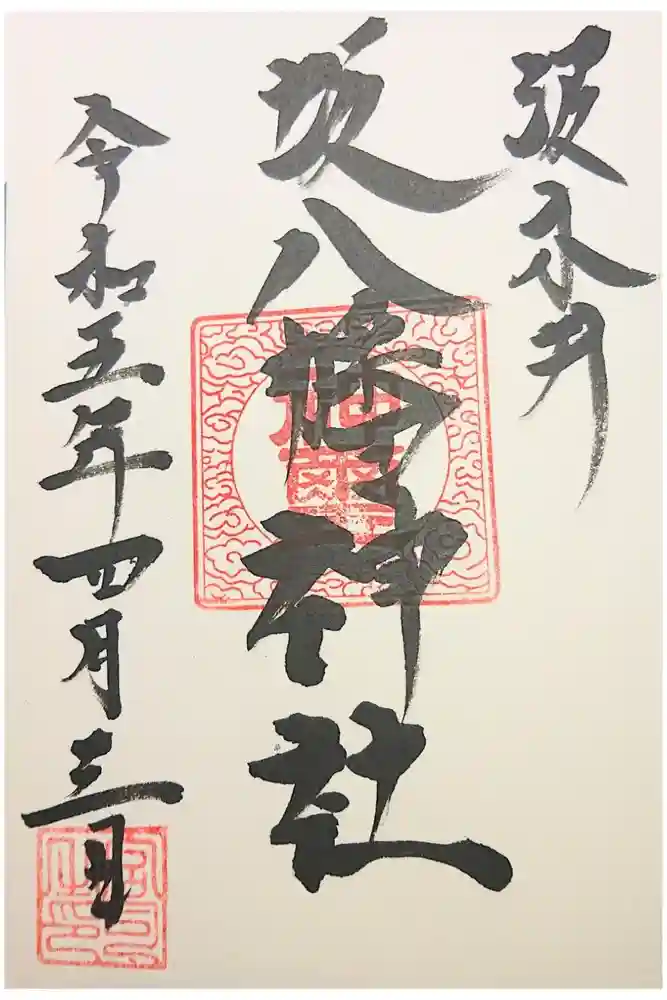 永井
坂八幡神社
令和五年四月三日